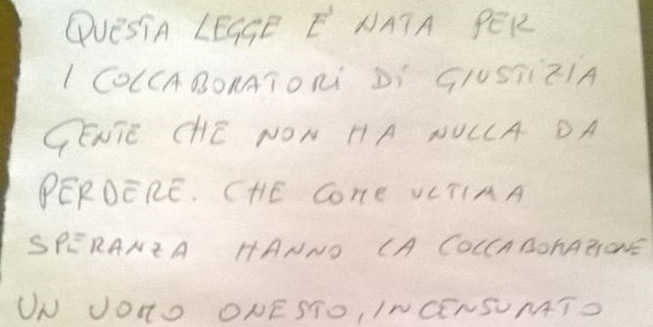 QUESTA LEGGE E' NATA PER
I COLLABORATORI DI GIUSTIZIA
GENTE CHE NON HA NULLA DA
PERDERE. CHE COME ULTIMA
SPERANZA HANNO LA COLLABORAZIONE
UN UOMO ONESTO, INCENSURATO